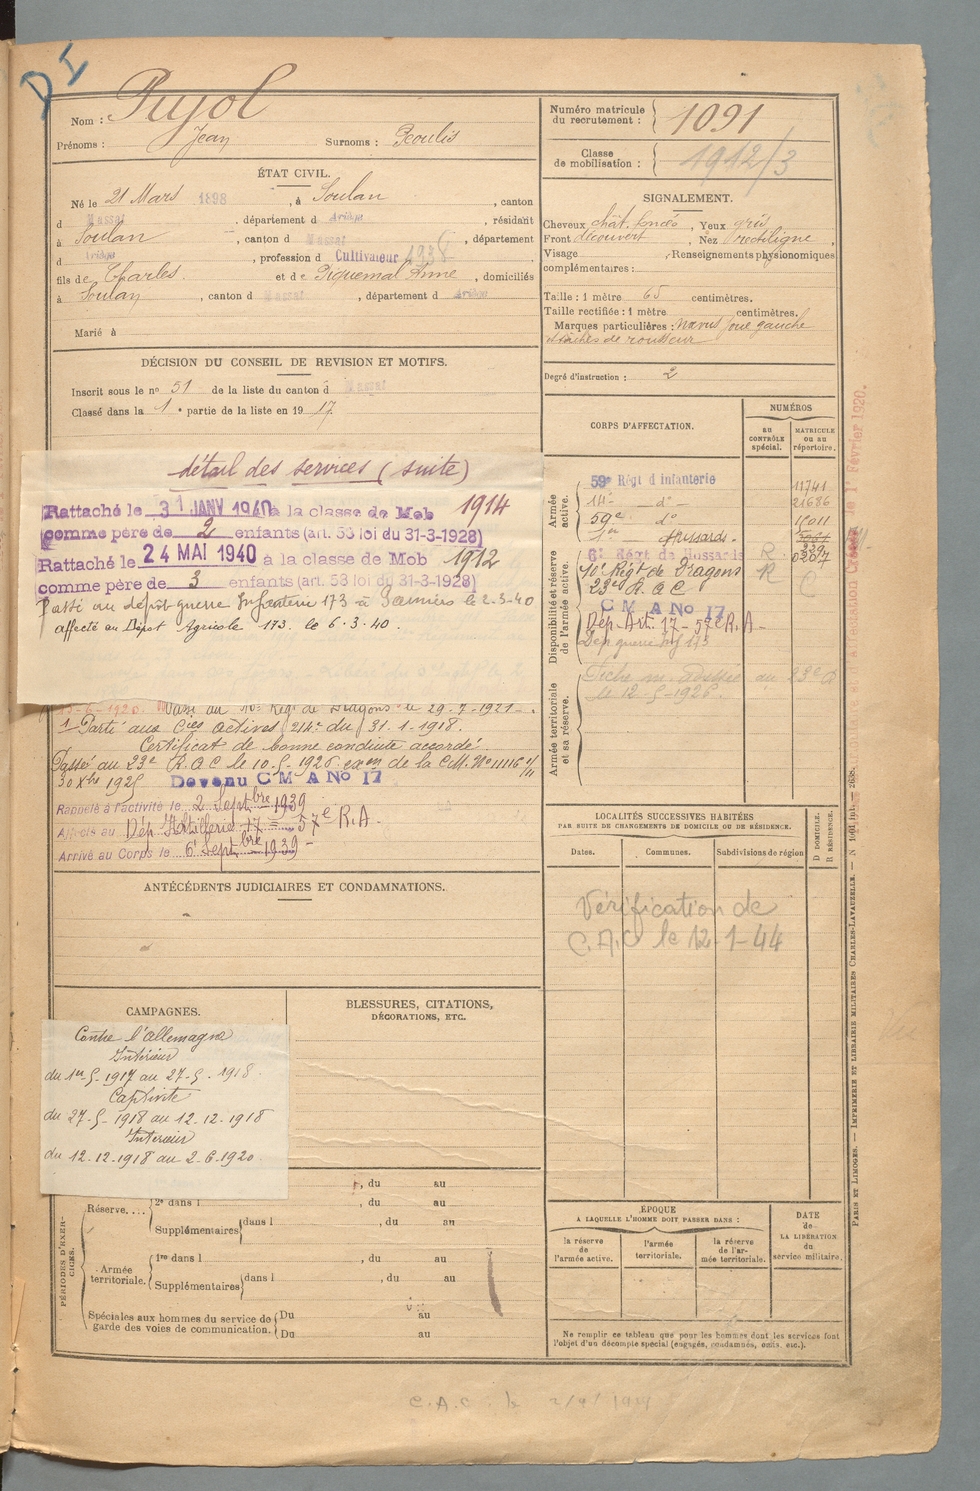 D I
Nom : Pujol
Prénoms : Jean Surnoms : Peoulis
Numéro matricule du recrutement : 1091
Classe de mobilisation : 1912/3
ÉTAT CIVIL.
Né le 21 Mars 1898, à Soulan, canton
d Massat, département d Ariège, résidant
à Soulan, canton d Massat, département
d Ariège, profession d Cultivateur 1938
fils de Charles et de Piquemal Anne, domiciliés
à Soulan, canton d Massat, département d Ariège
Marié à
SIGNALEMENT.
Cheveux chât. foncés, Yeux gris
Front découvert, Nez rectiligne,
Visage ; Renseignements physionomiques
complémentaires :
Taille : 1 mètre 65 centimètres.
Taille rectifiée : 1 mètre centimètres.
Marques particulières : nævus joue gauche
taches de rousseur
Degré d'instruction : 2
DÉCISION DU CONSEIL DE REVISION ET MOTIFS.
Inscrit sous le no 51 de la liste du canton d Massat
Classé dans la 1e partie de la liste en 1917
détail des services (suite)
Rattaché le 31 JANV 1940 à la classe de Mob 1914
comme père de 2 enfants (art. 58 loi du 31-3-1928)
Rattaché le 24 MAI 1940 à la classe de Mob 1912
comme père de 3 enfants (art. 58 loi du 31-3-1928)
Passé au dépôt guerre Infanterie 173 à Pamiers le 2-3-40
affecté au Dépot Agricole 173. le 6-3-40.
-6-1920. Passé au 10e Régt de Dragons le 29-7-1921-.
1 Parti aux Cies actives 214e du 31.1.1918.
Certificat de bonne conduite accordé.
Passé au 23e R.A.C le 10-5-1926 de la C.M. No 11116 1/11
30 Xbre 1925 Devenu C M A No 17
Rappelé à l'activité le 2 Septbre 1939
Affecté au Dép. Artillerie 17 = 57e R.A.
Arrivé au Corps le 6 Septbre 1939 -
CORPS D'AFFECTATION.
NUMÉROS
AU CONTRÔLE spécial.
MATRICULE OU AU répertoire.
Armée active.
59e Régt d'infanterie 11741
14e do 21686
59e do 15011
1er Hussards.
Disponibilité et réserve de l'armée active.
6e Régt de Hussards R.
10e Régt de Dragons R
23e R.A.C C
C M A No 17
Dép. Art. 17 - 57e R.A.-
Dép guerre Inf 173
Armée territoriale et sa réserve.
Fiche m. adressée au 23e
le 12-5-1926.
LOCALITÉS SUCCESSIVES HABITÉES
PAR SUITE DE CHANGEMENTS DE DOMICILE OU DE RÉSIDENCE.
D DOMICILE.
R RÉSIDENCE.
Dates. Communes. Subdivisions de région
Vérification de
C.A.C le 12-1-44
ANTÉCÉDENTS JUDICIAIRES ET CONDAMNATIONS.
CAMPAGNES.
Contre l'Allemagne
Intérieur
du 1er-5-1917 au 27-5-1918.
Captivité
du 27-5-1918 au 12-12-1918
Intérieur
du 12-12-1918 au 2-6-1920
BLESSURES, CITATIONS,
DÉCORATIONS, ETC.
PÉRIODES D'EXERCICES.
, du au
Réserve.... 2e dans l , du au
Supplémentaires dans l , du au
Armée territoriale. 1re dans l , du au
Supplémentaires dans l , du au
Spéciales aux hommes du service de garde des voies de communication. Du au
Du au
ÉPOQUE
A LAQUELLE L'HOMME DOIT PASSER DANS :
la réserve de l'armée active.
l'armée territoriale.
la réserve de l'armée territoriale.
DATE de LA LIBÉRATION du service militaire.
Ne remplir ce tableau que pour les hommes dont les services font
l'objet d'un décompte spécial (engagés, condamnés, omis, etc.).
PARIS ET LIMOGES. — IMPRIMERIE ET LIBRAIRIE MILITAIRES CHARLES-LAVAUZELLE.
1er Février 1920.
C.A.C. le